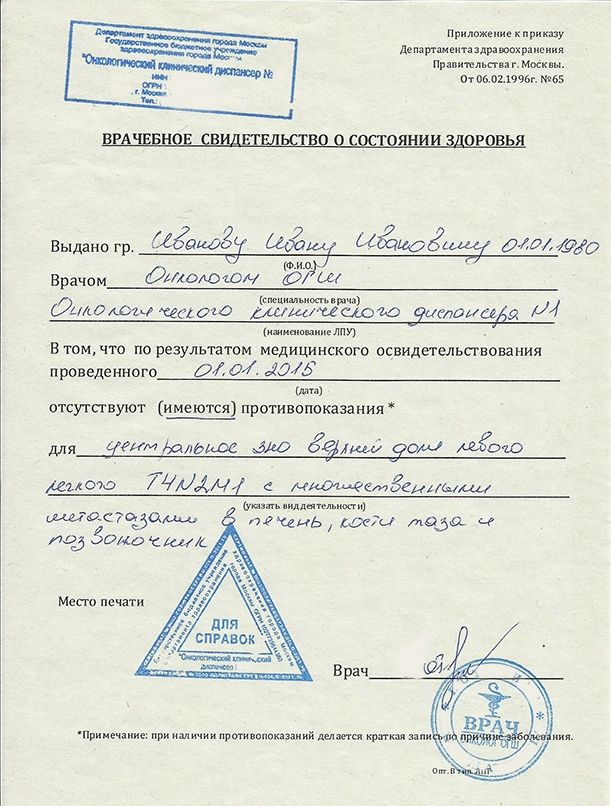 Департамент здравоохранения города Москвы
Государственное бюджетное учреждение
здравоохранения города
"Онкологический клинический диспансер №
ИНН
ОГРН
, г. Москва
Тел.:
Приложение к приказу
Департамента здравоохранения
Правительства г. Москвы.
От 06.02.1996г. №65
ВРАЧЕБНОЕ СВИДЕТЕЛЬСТВО О СОСТОЯНИИ ЗДОРОВЬЯ
Выдано гр. Иванову Ивану Ивановичу 01.01.1980
(Ф.И.О.)
Врачом Онкологом ОГШ
(специальность врача)
Онкологического клинического диспансера №1
(наименование ЛПУ)
В том, что по результатом медицинского освидетельствования
проведенного 01.01.2015
(дата)
отсутствуют (имеются) противопоказания *
для центральное зно верхней доли левого
легкого T4N2M1 с множественными
(указать вид деятельности)
метастазами в печень, кости таза и
позвоночник
Место печати
ДЛЯ
СПРАВОК
"Онкологический клинический
диспансер
Врач
ВРАЧ
ОНКОЛОГ ОГШ
*Примечание: при наличии противопоказаний делается краткая запись по причине заболевания.